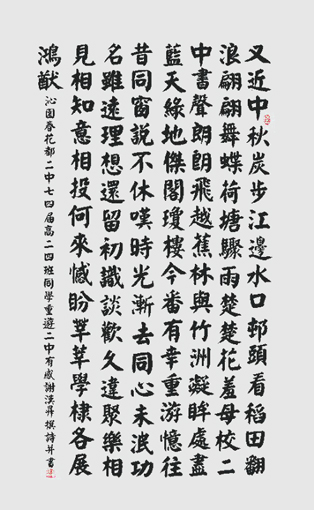 又近中秋炭步江邊水口邨頭看稻田翻
浪翩翩舞蝶荷塘驟雨楚楚花羞母校二
中書聲朗朗飛越蕉林與竹洲凝眸處盡
藍天綠地傑閣瓊樓今番有幸重游憶往
昔同窗說不休嘆時光漸去同心未泯功
名雖遠理想還留初識談歡久違聚樂相
見相知意相投何來憾盼莘莘學棣各展
鴻猷
沁園春花都二中七四届高二四班同學重遊二中有感謝漢昇撰詩并書